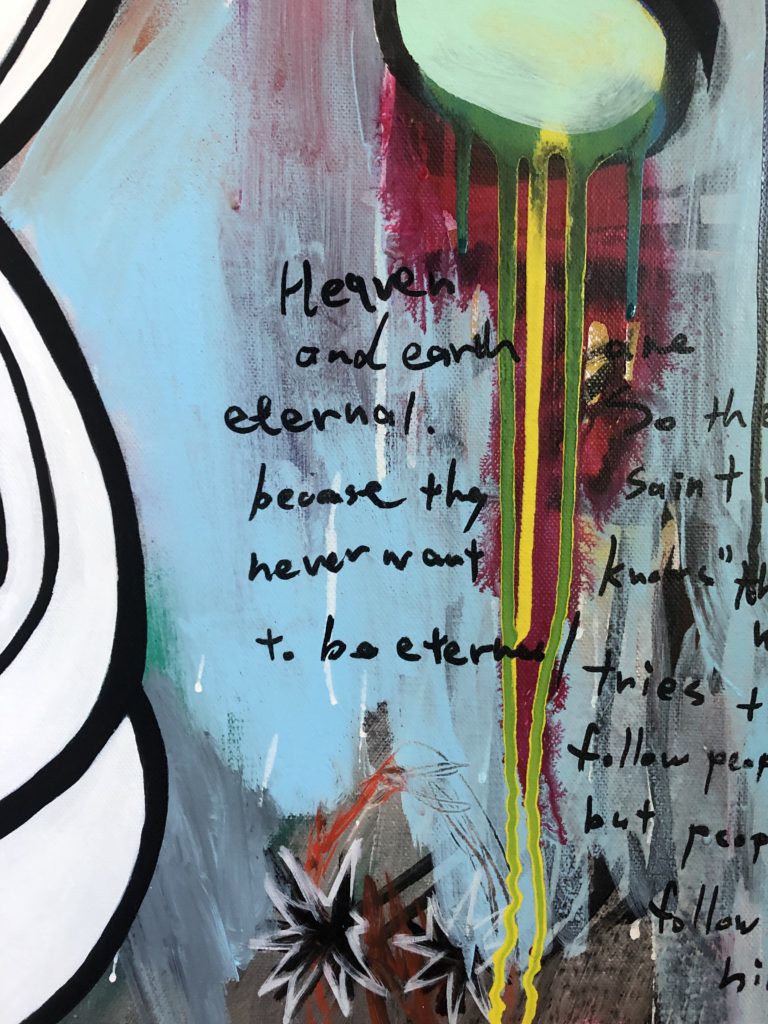 Heaven
and earth are
eternal.
because they
never want
to be eternal
So the
saint
knows"
tries
follow
but
follow